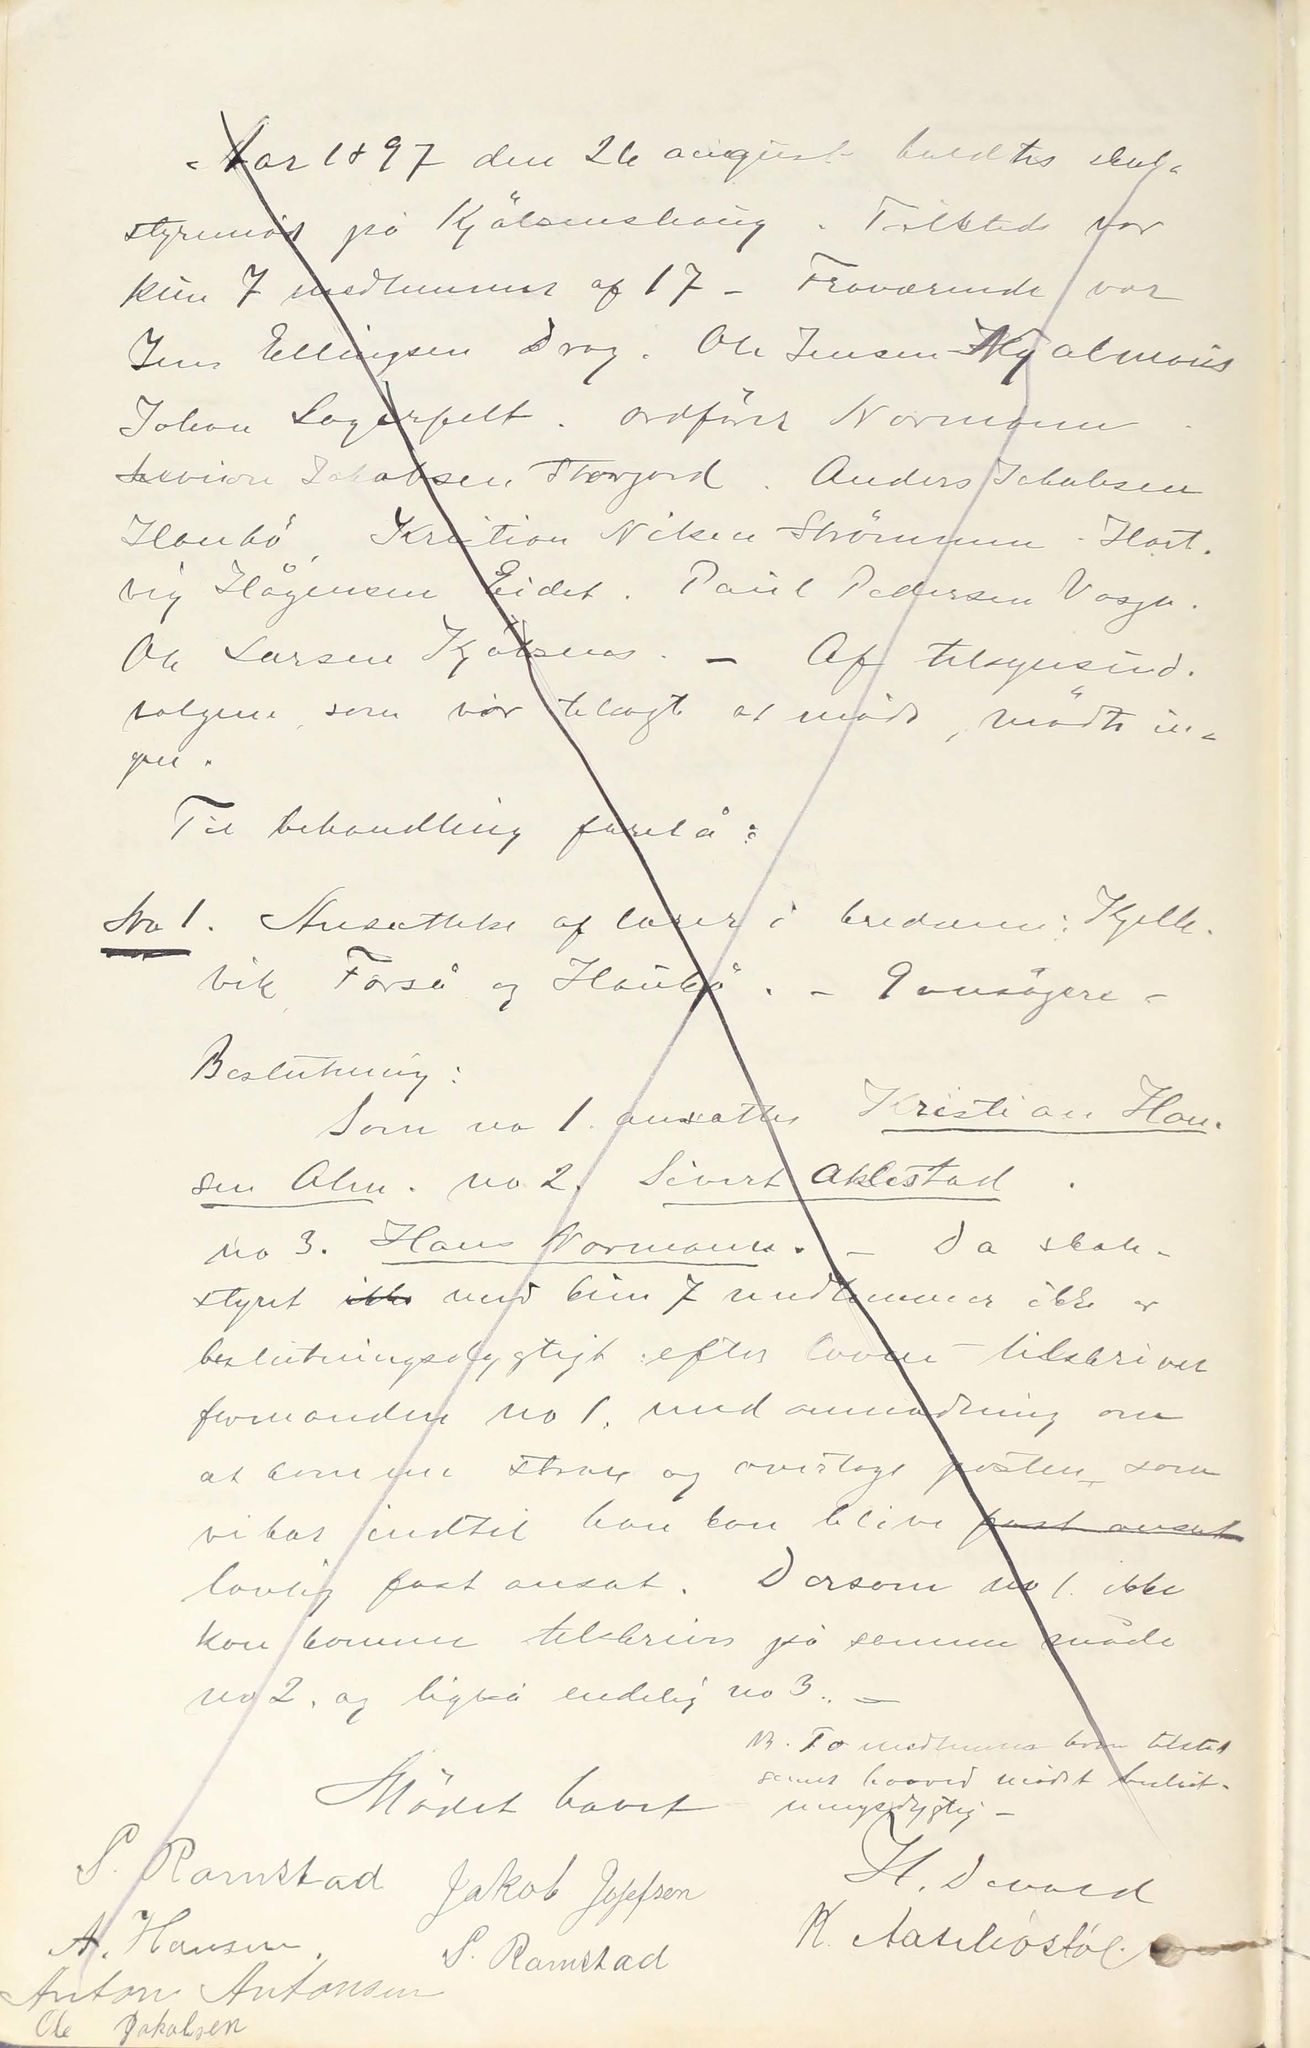 Aar 1897 den 26 august holdtes skol-
styremöde på Kjölsneshaug. Tilstede var
kun 7 medlemmer af 17 – Fraværende var
Jens Ellingsen Drag. Ole Jensen
Johan Lagerfelt. ordförer Normann.
Jakobsen Storjord. Anders Jakobsen
Haukö, Kristian Nilsen Strömmen - Hart-
vig Hågensen Eidet. Paul Pedersen Vasja.
Ole Larsen Kjölsnes. – Af tilsynsud-
valgene, som var tilsagt at möde, mödte in-
gen.
Til behandling forelå:
No 1. Ansættelse af lærer i kredsene: Kjelk-
vik, Forså og Haukö. – 9 ansögere –
Beslutning:
Som no 1. ansattes Kristian Han-
sen Alm. no 2. Sivert Aklestad.
no 3. Hans Normann. – Da skole-
styret ikke med kun 7 medlemmer ikke er
beslutningsdygtigt efter loven – tilskriver
formanden no 1. med anmodning om
at komme strax og overtage posten som
vikar indtil han kan blive fast ansat
lovlig fast ansat. Dersom no 1. ikke
kan komme tilskrives på samme måde
no 2. og ligeså endelig no 3. –
NB. To medlemmer kom tilsted
senere hvorved mödet beslut-
ningsdygtig –
Mödet hævet
P. Ramstad Jakob Josefsen H. Devold
A. Hansen. P. Ramstad K.
Anton Antonsen
Ole Jakobsen